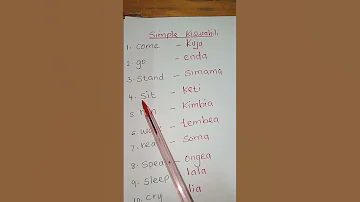 Simple Kiswahili
1. Come - Kuja
2. go - enda
3. Stand - Simama
4. Sit - Keti
5. - Kimbia
6. - tembea
7. read - Soma
8. Speak - ongea
9. Sleep - lala
10. Cry - lia